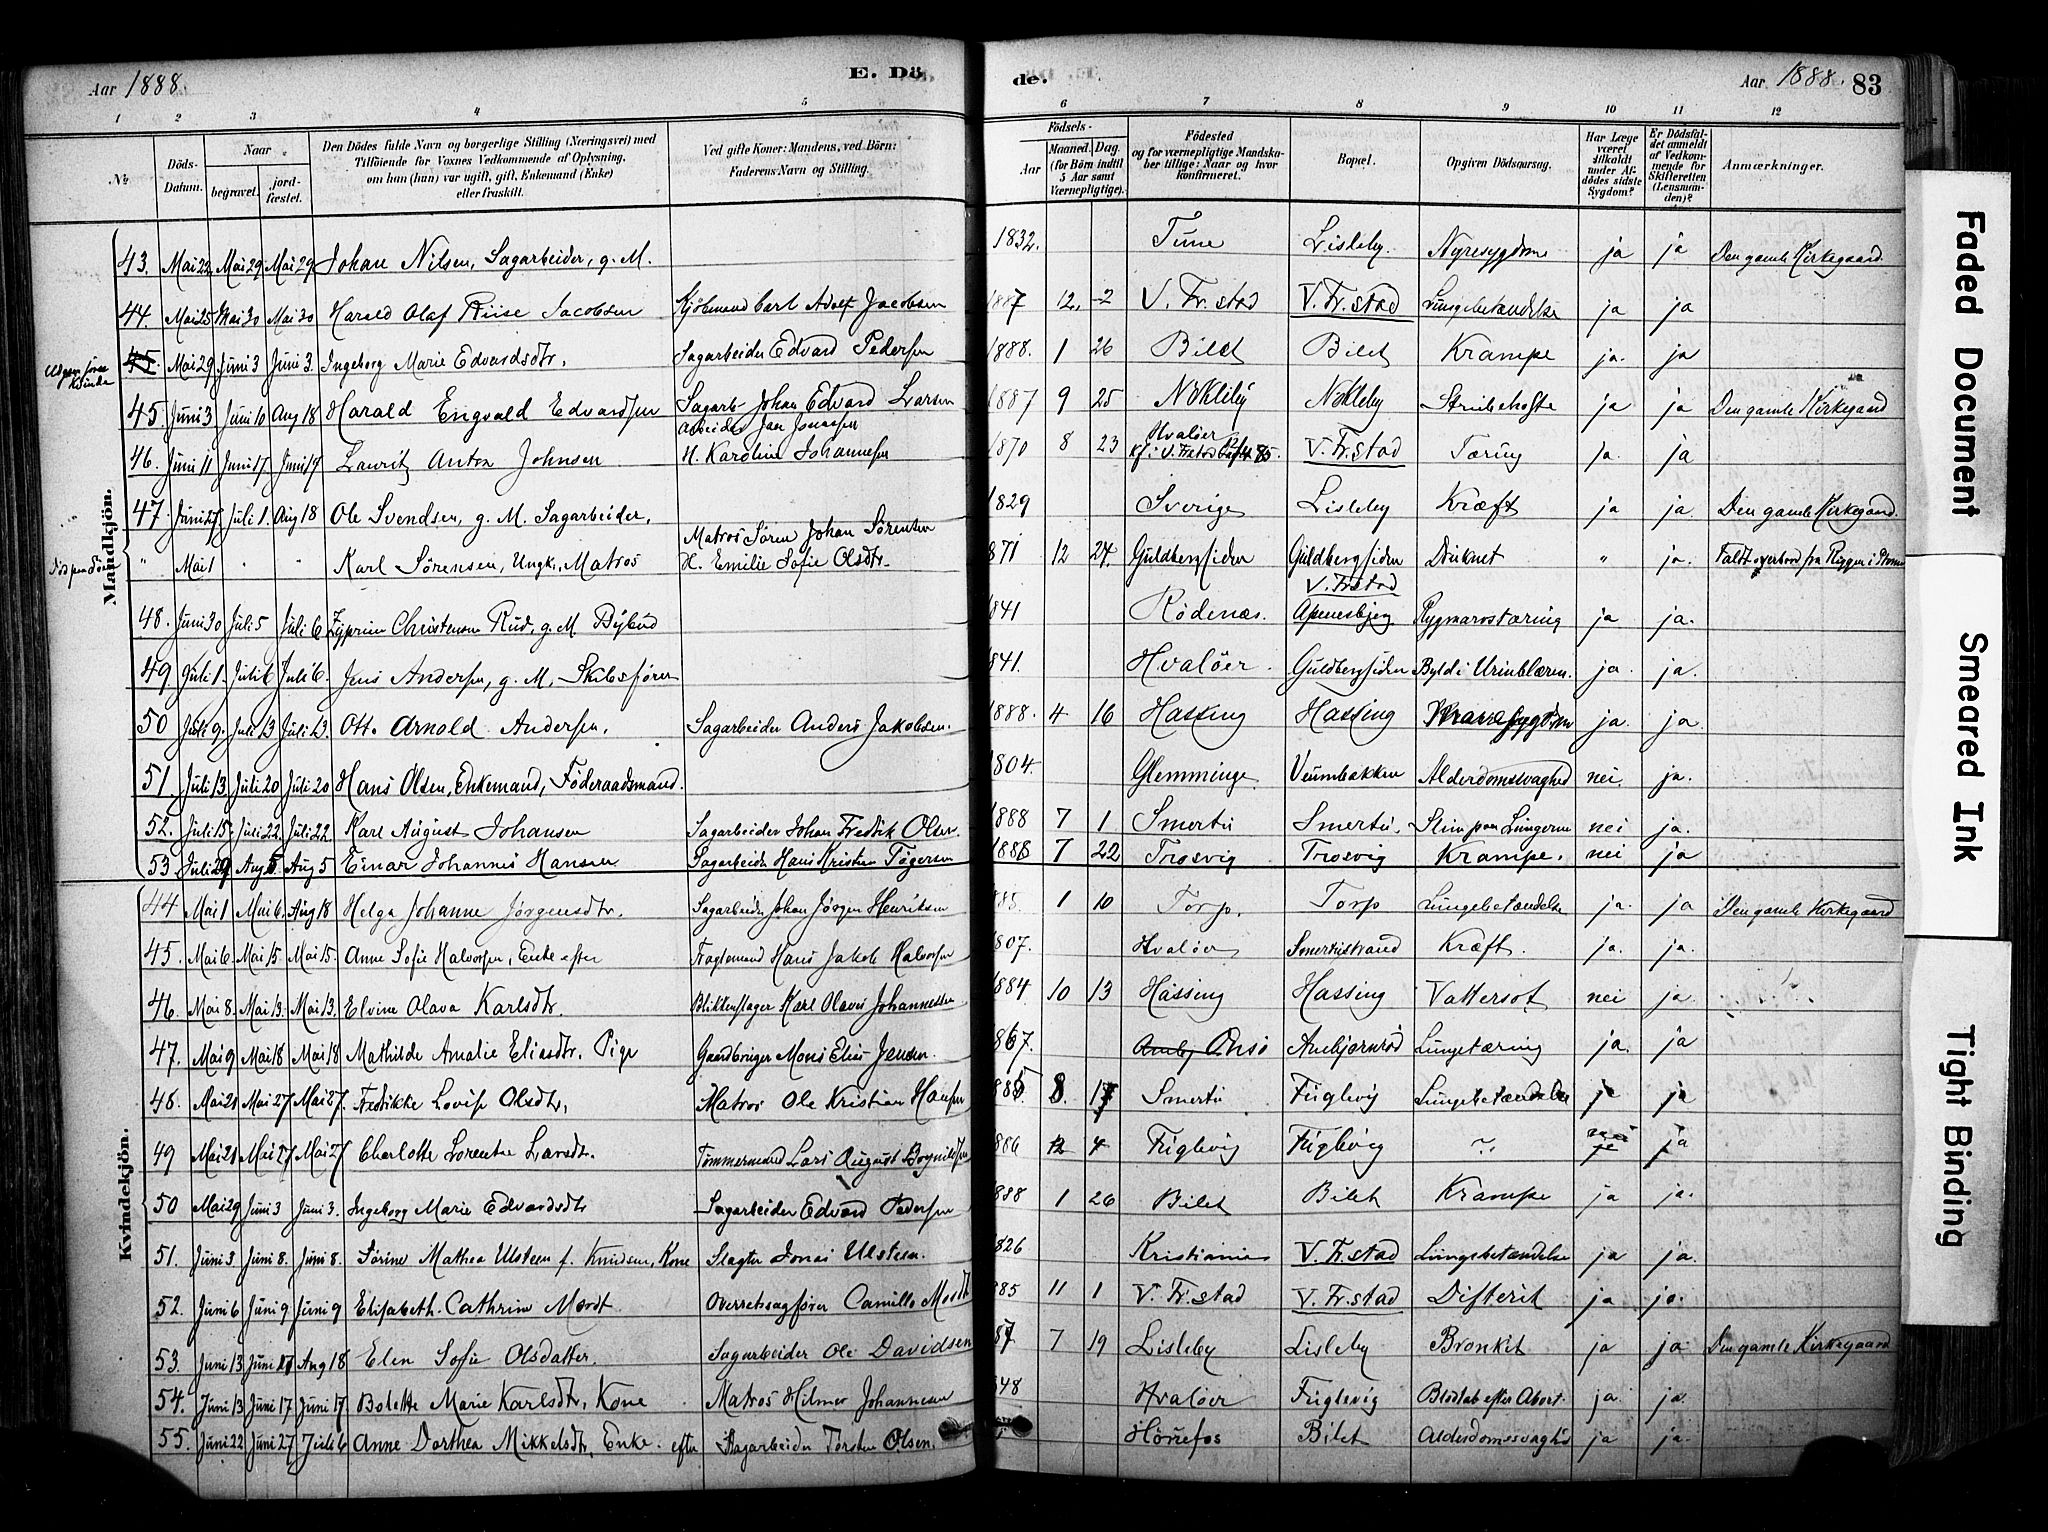 Aar 1888. E. Dö
1 2 3 4 5
№ Döds-Datum. Naar begravet. jord-fæstet. Den Dödes fulde Navn og borgerlige Stilling (Næringsvei) med Tilföiende for Voxnes Vedkommende af Oplysning, om han (hun) var ugift, gift, Enkemand (Enke) eller fraskilt. Ved gifte Koner: Mandens, ved Börn: Faderens Navn og Stilling.
de. Aar 1888. 83
6 7 8 9 10 11 12
Födsels- Aar Maaned. Dag. (for Börn indtil 5 Aar samt Værnepligtige). Födested og for værnepligtige Mandskaber tillige: Naar og hvor konfirmeret. Bopæl. Opgiven Dödsaarsag. Har Læge været tilkaldt under Afdödes sidste Sygdom? Er Dödsfaldet anmeldt af Vedkommende for Skifteretten (Lensmanden)? Anmærkninger.
Mandkjön.
43. Mai 22 Mai 29 Mai 29 Johan Nilsen, Sagarbeider, g. M. 1832. Tune Lisleby. Nyresygdom ja ja Den gamle Kirkegaard.
44. Mai 25 Mai 30 Mai 30 Harald Olaf Riise Jacobsen Kjöbmand Carl Adolf Jacobsen 1887 12. 2 V. Fr.stad V. Fr.stad Lungebetændelse ja ja
45. Mai 29 Juni 3 Juni 3. Ingeborg Marie Edvardsdtr. Sagarbeider Edvard Pedersen 1888. 1 26 Bilet Bilet Krampe ja. ja
45. Juni 3 Juni 10 Aug 18 Harald Engvald Edvardsen Sagarb. Johan Edvard Larsen 1887 9 25 Nökleby Nökleby Strubehoste ja ja Den gamle Kirkegaard
46. Juni 11 Juni 17 Juni 19 Lauritz Anton Johnsen Arbeider Jan Jonassen H. Karoline Johannesen 1870 8 23 Hvalöer V. Fr.stad Tæring ja. ja
47 Juni 27 Juli 1. Aug 18 Ole Svendsen, g. M. Sagarbeider. 1829 Sverige Lisleby Kræft ja ja. Den gamle Kirkegaard.
" Mai 1 " " Karl Sörensen, Ungk., Matros Matros Sören Johan Sörensen H. Emilie Sofie Olsdtr. 871 12 24. Guldbergsiden Guldbergsiden V. Frstad Druknet " ja. Faldt overbord fra Riggen i
48. Juni 30 Juli 5 Juli 6 Christensen Rud, g. M. Bybud 841 Rödenæs. Apenesbjerg Rygmarvstæring ja ja.
49 Juli 1. Juli 6 Juli 6. Jens Andersen, g. M. Skibsförer 841. Hvalöer. Guldbergsiden Byld i Urinblæren. ja. ja.
50 Juli 9. Juli 13 Juli 13. Otto Arnold Andersen. Sagarbeider Anders Jakobsen. 1888. 4 16 Hassing Hassing ja. ja.
51. Juli 13 Juli 20 Juli 20 Hans Olsen, Enkemand, Föderaadsmand. 1804. Glemminge. Veumbakken Alderdomssvaghed nei. ja.
52. Juli 15. Juli 22. Juli 22 Karl August Johansen Sagarbeider Johan Fredrik Olsen. 1888 7 1 Smertu Smertu. Slim paa Lungerne nei ja.
53 Juli 29 Aug 5. Aug 5 Einar Johannes Hansen Sagarbeider Hans Kristian Tögersen 1888 7 22 Trosvig Trosvig Krampe. nei ja
Kvindekjön.
44 Mai 1 Mai 6. Aug 18 Helga Johanne Jörgensdtr. Sagarbeider Johan Jörgen Henriksen 885. 1 10 Torp. Torp Lungebetændelse ja. ja Den gamle Kirkegaard
45. Mai 6. Mai 15 Mai 15. Anne Sofie Halvorsen, Enke efter Fragtemand Hans Jakob Halvorsen 1807. Hvalöer Smertustrand Kræft. ja. ja.
46. Mai 8. Mai 13. Mai 13. Elvine Olava Karlsdtr. Blikkenslager Karl Olaves Johannessen 1884 10 13 Hassing Hassing Vattersot nei ja.
47. Mai 9 Mai 18 Mai 18 Mathilde Amalie Eliasdtr. Pige Gaardbruger Mons Elias Jensen. 867. Onsö Ambjørnröd Lungetæring ja. ja
48. Mai 21 Mai 27 Mai 27. Fredrikke Lovise Olsdtr, Matros Ole Kristian Hansen 885 8. 17 Smertu Fuglevig Lungebetændelse ja ja
49 Mai 21 Mai 27 Mai 27 Charlotte Lorentse Larsdtr. Tömmermand Lars August 886 12 4 Fuglevig Fuglevig " nei ja
50 Mai 29 Juni 3 Juni 3. Ingeborg Marie Edvardsdtr Sagarbeider Edvard Pedersen 888 1 26 Bilet Bilet Krampe ja ja.
51. Juni 3 Juni 8. Juni 8. Sörine Mathea Ulsteen f. Knudsen, Kone Slagter Jonas Ulsteen. 826 Kristiania V. Fr.stad Lungebetændelse ja ja.
52. Juni 6 Juni 9 Juni 9 Elisabeth Cathrine Mordt Overretssagförer Camillo Mordt 885 11 1 V. Fr.stad V. Fr.stad Difterit ja ja.
53. Juni 13 Juni 17 Aug 18 Elen Sofie Olsdatter. Sagarbeider Ole Davidsen 87 7 19 Lisleby Lisleby Bronkit ja ja Den gamle Kirkegaard
54. Juni 13 Juni 17 Juni 17 Bolette Marie Karlsdtr, Kone Matros Hilmer Johannesen 848 Hvalöer Fuglevig Blodtab efter Abort. ja. ja.
55. Juni 22 Juni 27 Juli 6 Anne Dorthea Mikkelsdtr, Enke efter Sagarbeider Torsten Olsen. Bilet Alderdomssvaghed ja ja.
Faded Document
Smeared Ink
Tight Binding